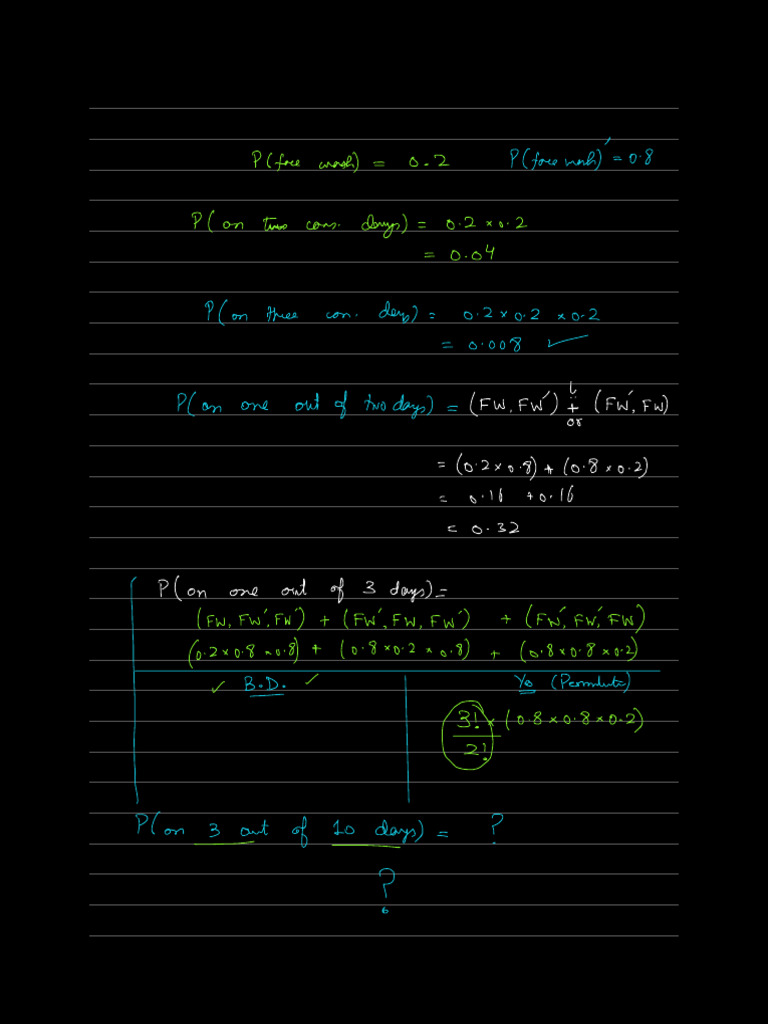 P(face wash) = 0.2 P(face wash)′ = 0.8
P(on two cons. days) = 0.2 × 0.2
= 0.04
P(on three con. days) = 0.2 × 0.2 × 0.2
= 0.008 ✓
P(on one out of two days) = (FW, FW′) + (FW′, FW)
or
= (0.2 × 0.8) + (0.8 × 0.2)
= 0.16 + 0.16
= 0.32
P(on one out of 3 days) =
(FW, FW′, FW′) + (FW′, FW, FW′) + (FW′, FW′, FW)
(0.2 × 0.8 × 0.8) + (0.8 × 0.2 × 0.8) + (0.8 × 0.8 × 0.2)
✓ B.D. ✓ (Permutate)
3!/2! × (0.8 × 0.8 × 0.2)
P(on 3 out of 10 days) = ?
?